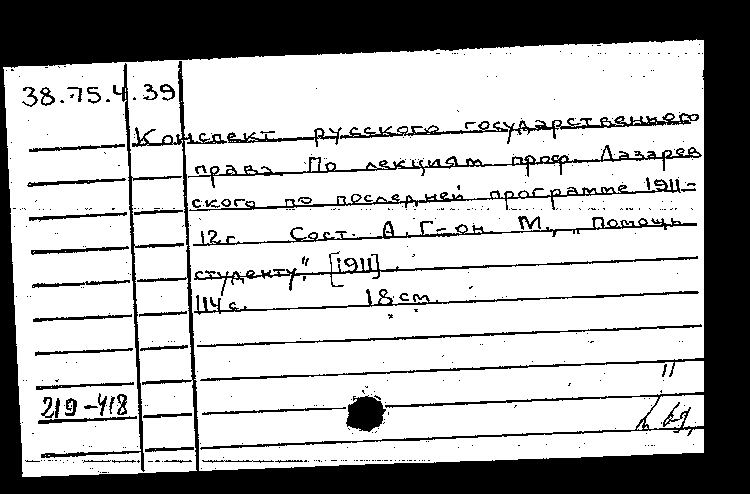 38.75.4.39
Конспект русского государственного
права. По лекциям проф. Лазарев
ского по последней программе 1911-
12 г. Сост. А. Г-он. М., „Помощь
студенту". [1911].
114 с. 18 см.
219-418